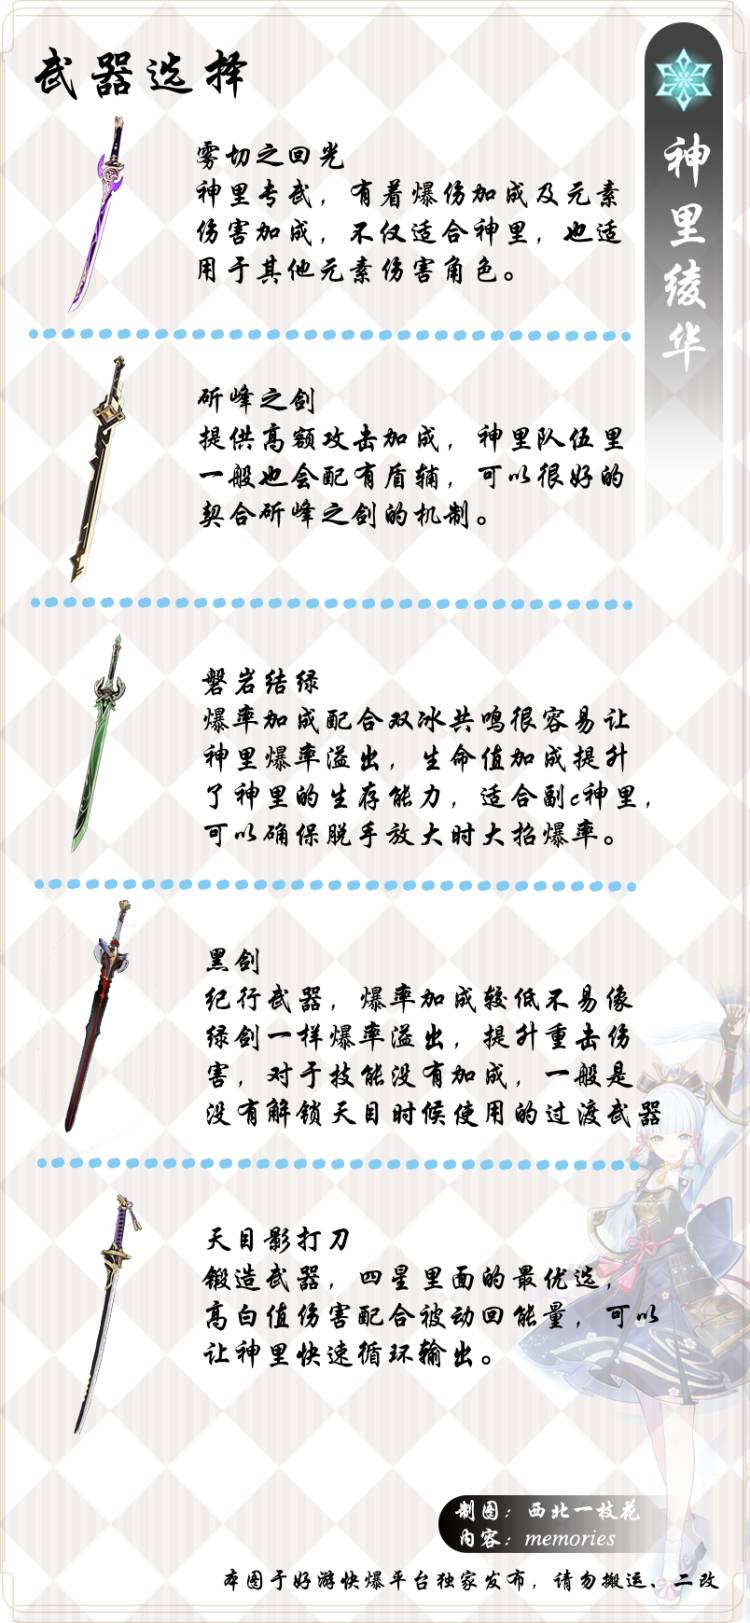 武器选择
神里绫华
雾切之回光
神里专武，有着爆伤加成及元素
伤害加成，不仅适合神里，也适
用于其他元素伤害角色。
斫峰之剑
提供高额攻击加成，神里队伍里
一般也会配有盾辅，可以很好的
契合斫峰之剑的机制。
磐岩结绿
爆率加成配合双冰共鸣很容易让
神里爆率溢出，生命值加成提升
了神里的生存能力，适合副c神里，
可以确保脱手放大时大招爆率。
黑剑
纪行武器，爆率加成较低不易像
绿剑一样爆率溢出，提升重击伤
害，对于技能没有加成，一般是
没有解锁天目时候使用的过渡武器
天目影打刀
锻造武器，四星里面的最优选，
高白值伤害配合被动回能量，可以
让神里快速循环输出。
制图：西北一枝花
内容：memories
本图于好游快爆平台独家发布，请勿搬运、二改